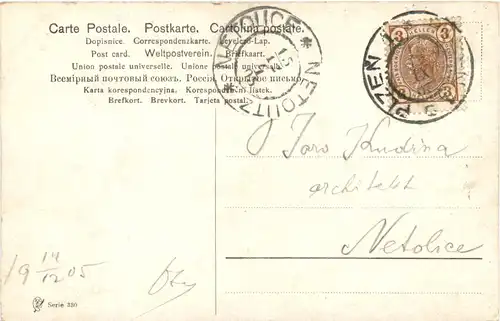 Carte Postale. Postkarte. Cartolina postale.
Dopisnice. Correspondenzkarte. Levelezo-Lap.
Post card. Weltpostverein. Briefkaart.
Union postale universelle. Unione postale universelle.
Всемірный почтовый союзъ. Россія. Открытое письмо.
Karta korespondencyjna. Korespondenční lístek.
Brefkort. Brevkort. Tarjeta postal.
NETOLICE * NETOLITZ *
PLZEŇ 1
3 HELLER 3
Jaro Kudrna
architekt
Netolice
19 14/12 05
Serie 330